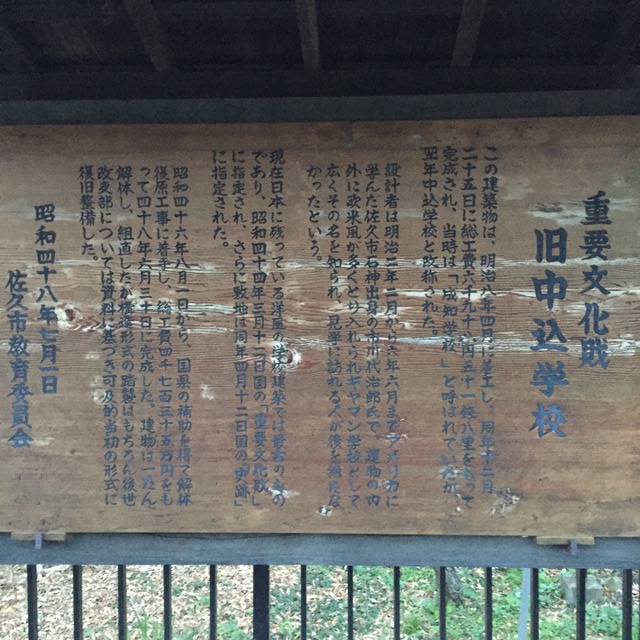 重要文化財
旧中込学校
この建築物は、明治八年四月に着工し、同年十二月
二十五日に総工費六千九十八円五十一銭八厘をもって
完成され、当時は「成知学校」と呼ばれていたが、
翌年中込学校と改称された。
設計者は明治二年二月から六年六月まで
学んだ佐久市石神出身の市川代治郎氏で、建物の内
外に欧米風が多くとり入れられギヤマン学校として
広くその名を知られ、見学に訪れる人が後を絶たな
かったという。
現在日本に残っている洋風の学校建築では最古のもの
であり、昭和四十四年三月十二日国の「重要文化財」
に指定され、さらに敷地は同年四月十二日国の「史跡」
に指定された。
昭和四十六年八月一日から、国県の補助を得て解体
復原工事に着手し、総工費四千七百三十五万円をも
って四十八年六月三十日に完成した。建物は一たん
解体し、組直したが構造形式の踏襲はもちろん後世
改変部については資料に基づき可及的当初の形式に
復旧整備した。
昭和四十八年七月一日
佐久市教育委員会